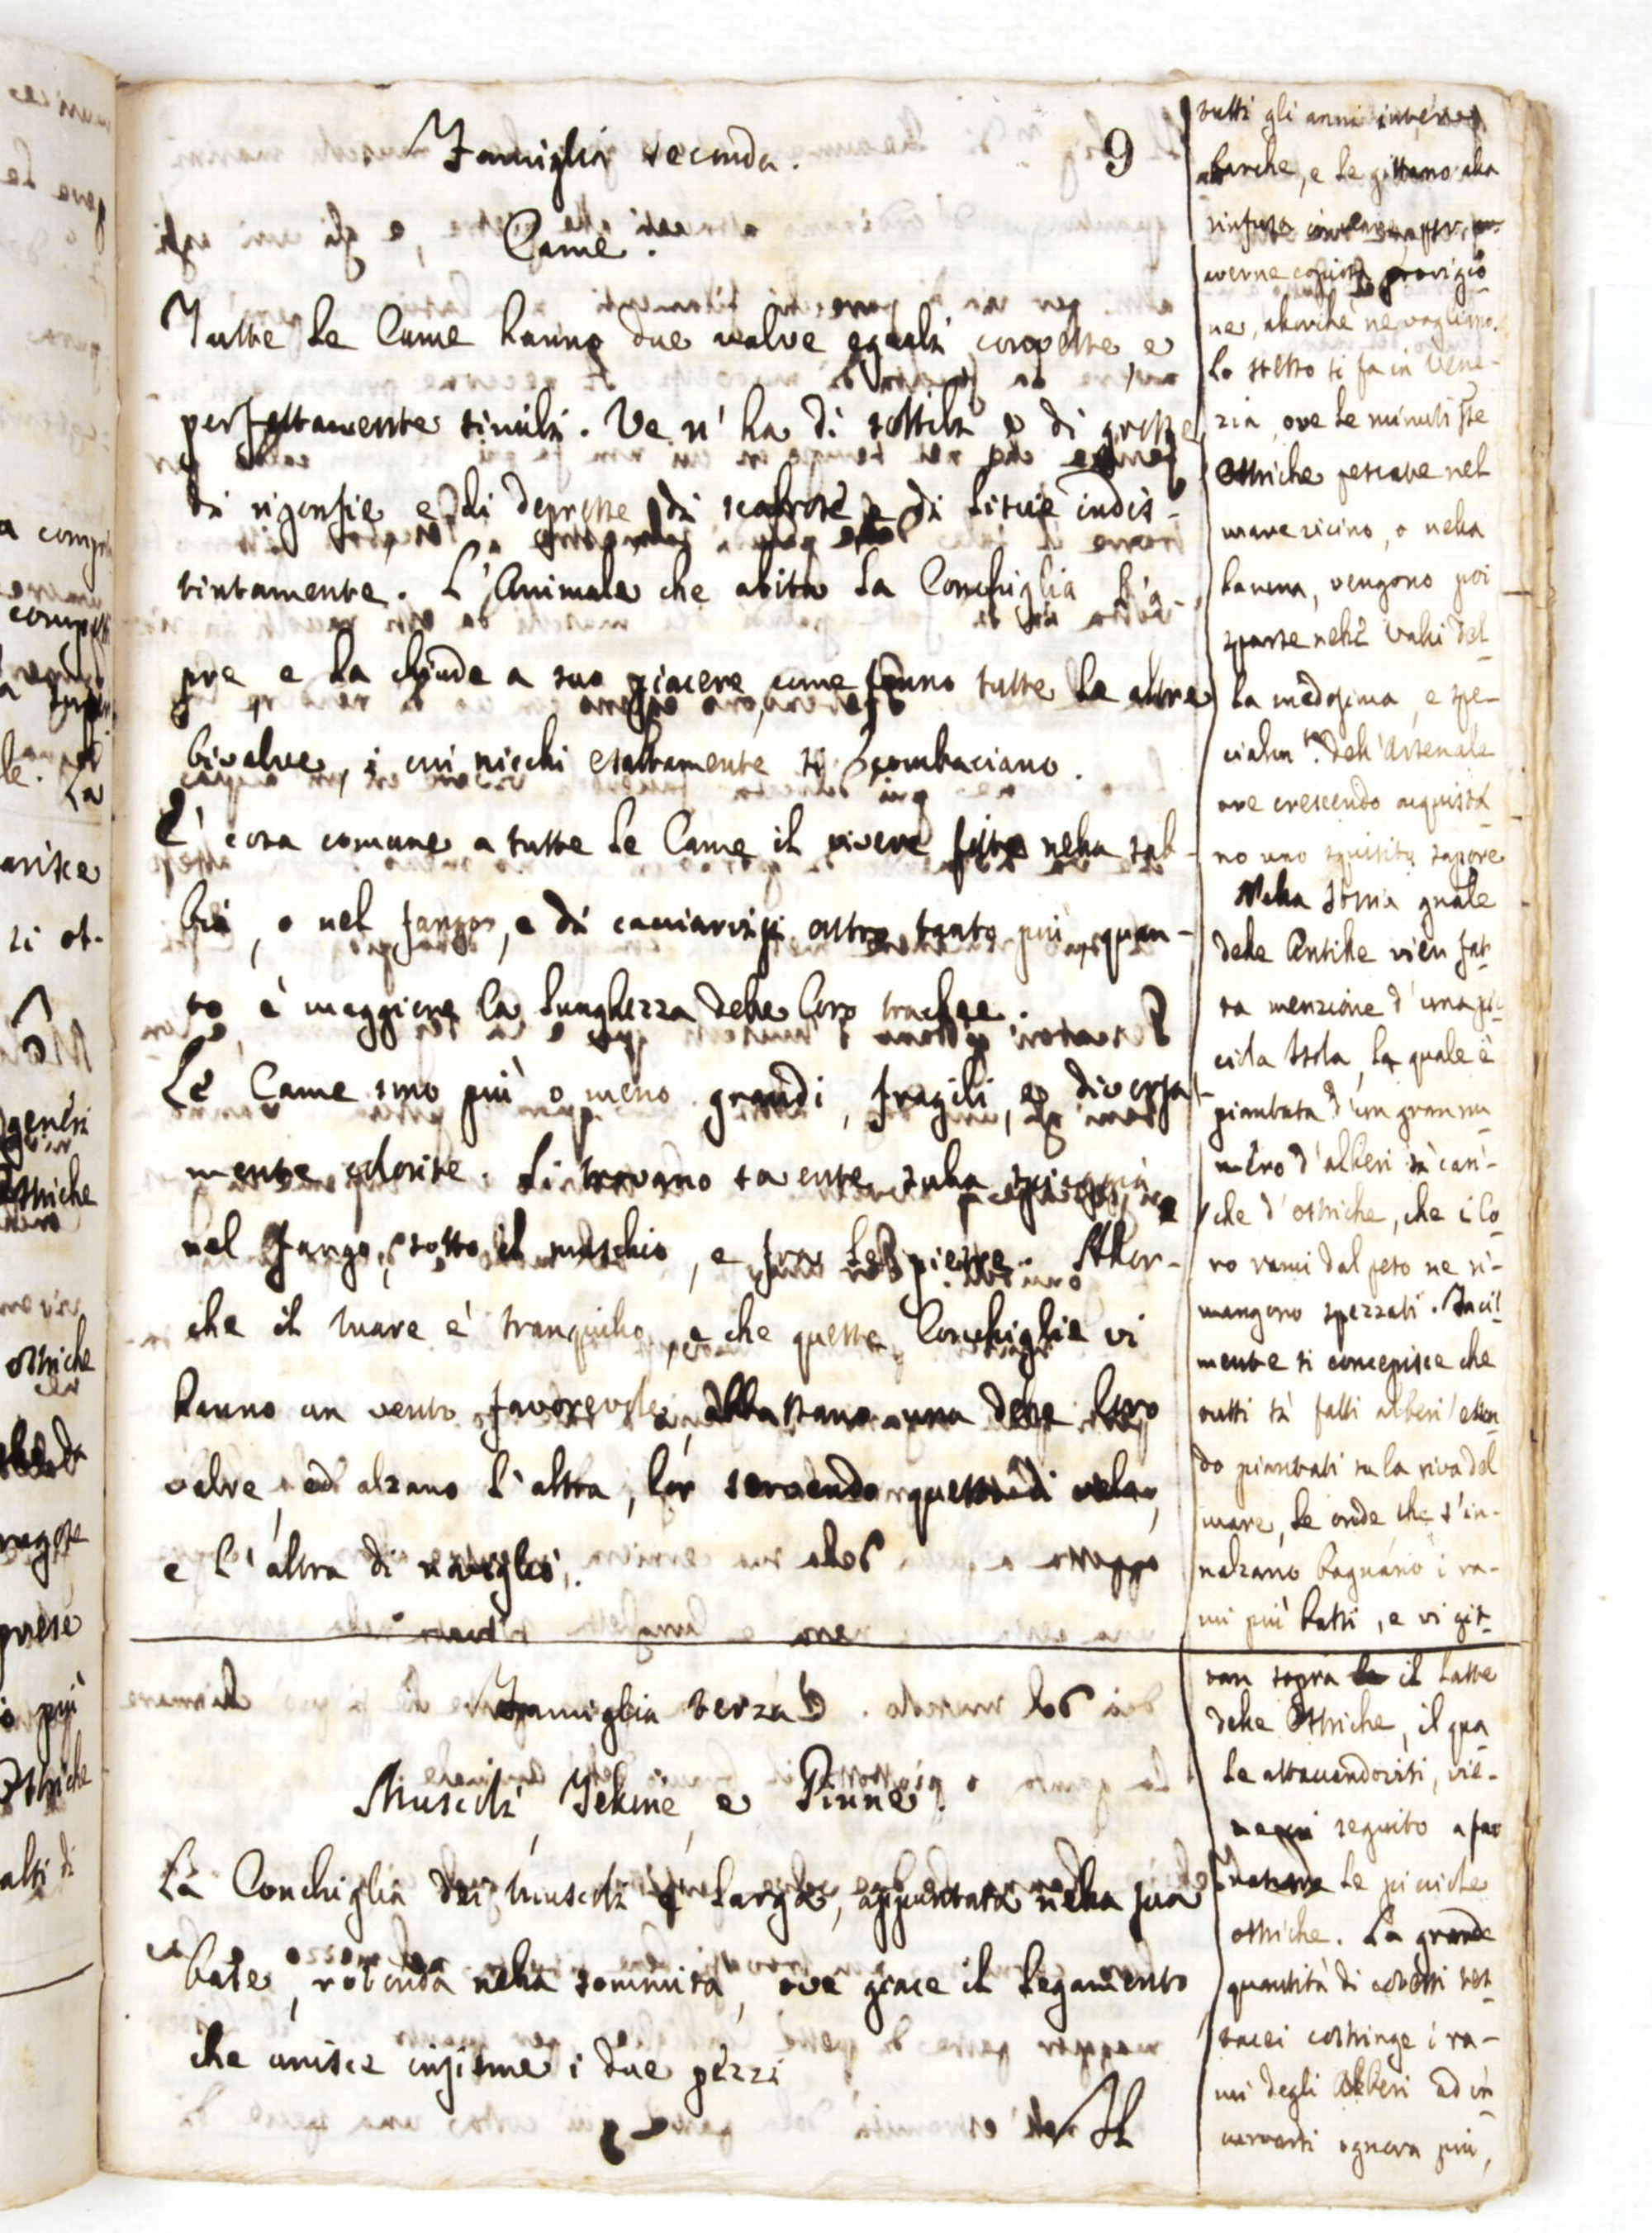 9
Famiglia seconda.
Came.
Tutte le Came hanno due valve eguali, convesse, e
perfettamente simili. Ve n'ha di sottili e di grosse
di rigonfie e di depresse, di scabrose e di liscie indis-
tintamente. L'Animale che abita la Conchiglia l'a-
pre e la chiude a suo piacere, come fanno tutte le altre
bivalve, i cui nicchi esattamente si combaciano.
E' cosa comune a tutte le Came il vivere fitte nella sab-
bia, o nel fango, e di cacciarvisi oltre tanto più, quan-
to è maggiore la lunghezza delle loro trachee.
Le Came sono più o meno grandi, fragili, e diversa-
mente colorite. Si trovano sovente sulla spiaggia,
nel fango, sotto il muschio, e fra le pietre. Allor-
che il mare è tranquillo, e che queste Conchiglie vi
hanno un vento favorevole, abbassano una delle loro
valve, ed alzano l'altra, lor servendo questa di vela,
e l'altra di naviglio.
Famiglia terza
Muscoli, Telline, e Pinne.
La Conchiglia dei Muscoli è larga, appuntata nella sua
base, rotonda nella sommità, ove giace il legamento
che unisce insieme i due pezzi
Il
tutti gli anni intere
barche, e le gittano alla
rinfusa
averne copiosa provigio-
ne, allorchè ne vogliono.
Lo stesso si fa in Vene-
zia, ove le minutissime
Ostriche pescate nel
mare vicino, o nella
laguna, vengono poi
sparse nelle Valli del-
la medesima, e spe-
cialm.te dell'Arsenale
ove crescendo acquista-
no uno squisito sapore
Nella Storia gnāle
delle Antille vien fat-
ta menzione d'una pic-
ciola Isola, la quale è
piantata d'un gran nu
mero d'alberi sì cari-
che d'ostriche, che i lo-
ro rami dal peso ne ri-
mangono spezzati. Facil-
mente si concepisce che
tutti sì fatti alberi essen
do piantati su la riva del
mare, le onde che s'in-
nalzano bagnano i ra-
mi più bassi, e vi git-
tan sopra il latte
delle Ostriche, il qua
le attaccandovisi, vie-
ne seguito a far
le picciole
ostriche. La grande
quantità di cotesti tes-
tacei costringe i ra-
mi degli Alberi ad in-
curvarsi ognora più,